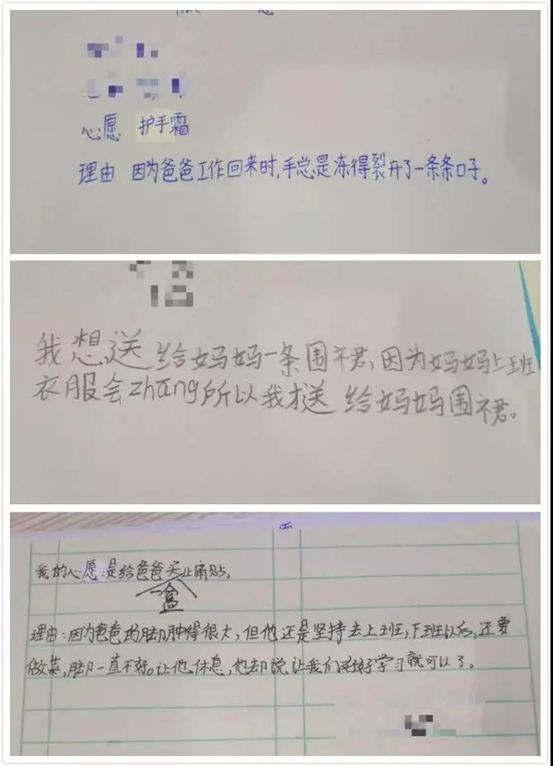 心愿 护手霜
理由 因为爸爸工作回来时,手总是冻得裂开了一条条口子。
我想送给妈妈一条围裙,因为妈妈上班
衣服会zhāng所以我才送给妈妈围裙。
我的心愿:是给爸爸买止痛贴。
一盒
理由:因为爸爸的脚肿得很大,但他还是坚持去上班,下班以后,还要
做菜,脚一直不好。让他休息,他却说让我们好好学习就可以了。